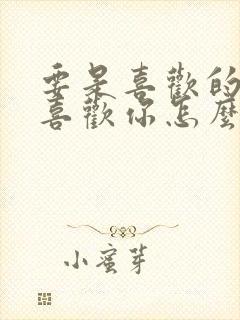 要是喜歡的
喜歡你怎麼
小蜜芽